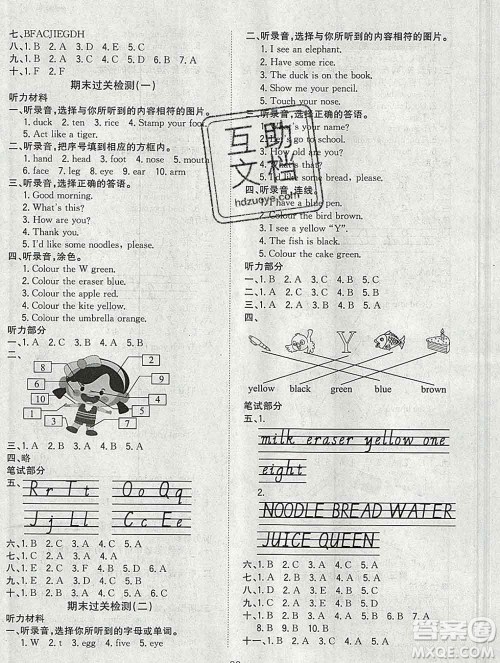 七、BFACJIEGDH
八、1. B 2. A 3. A 4. B 5. B
十、1. F 2. A
期末过关检测(一)
听力材料
一、听录音,选择与你所听到的内容相符的图片。
1. duck 2. ten 3. rice 4. Stamp your foot.
5. Act like a tiger.
二、听录音,把序号填到相应的方框内。
1. hand 2. head 3. foot 4. nose 5. mouth
6. face 7. leg 8. eye 9. ear 10. arm
三、听录音,选择正确的答语。
1. Good morning.
2. What's this?
3. How are you?
4. Thank you.
5. I'd like some noodles, please.
四、听录音,涂色。
1. Colour the W green.
2. Colour the eraser blue.
3. Colour the apple red.
4. Colour the kite yellow.
5. Colour the umbrella orange.
听力部分
一、1. A 2. B 3. A 4. B 5. A
二、
8 10 4 6 1
2 9 5 7 3
三、1. A 2. B 3. A 4. B 5. A
四、略
笔试部分
五、Rr Tt Oo Qq
Ll Jj Cc Uu
六、1. B 2. C 3. A 4. B 5. A
七、1. C 2. A 3. B 4. A 5. B
八、1. B 2. A 3. A 4. B 5. A
九、1. D 2. B 3. E 4. C 5. A
期末过关检测(二)
听力材料
一、听录音,选择你所听到的字母或单词。
1. I 2. w 3. egg 4. yellow 5. this
二、听录音,选择与你所听到的内容相符的图片。
1. I see an elephant.
2. Have some rice.
3. The duck is on the book.
4. Show me your pencil.
5. Touch your nose.
三、听录音,选择正确的答语。
1. What's your name?
2. Let's go to school.
3. How old are you?
4. How are you?
5. I'd like some bread, please.
四、听录音,连线。
1. I have a blue pen.
2. Colour the bird brown.
3. I see a yellow “Y”.
4. The fish is black.
5. Colour the cake green.
听力部分
一、1. B 2. A 3. C 4. B 5. A
二、1. B 2. A 3. B 4. A 5. A
三、1. B 2. A 3. C 4. B 5. A
四、
Y
yellow black green blue brown
笔试部分
五、1.
milk eraser yellow one
eight
2.
NOODLE BREAD WATER
JUICE QUEEN
六、1. B 2. C 3. A 4. C 5. A
七、1. B 2. A 3. A 4. B 5. B
八、1. B 2. A 3. A 4. B 5. A
九、1. C 2. D 3. A 4. E 5. B
十、1. B 2. A 3. A 4. B 5. A
互助
文档
hdzuoye.com
答案圈
MXQE.COM